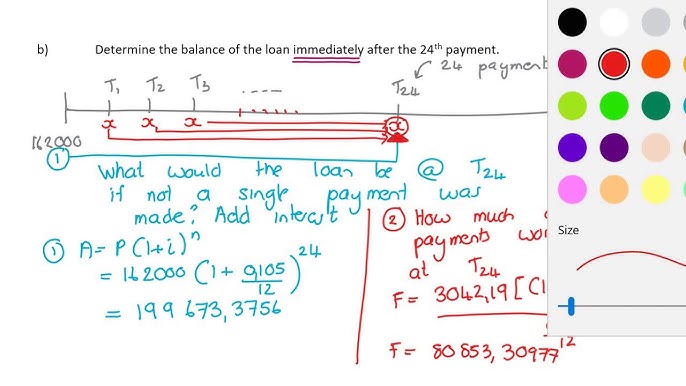 b) Determine the balance of the loan immediately after the 24th payment.
24 payment
T1 T2 T3 ----- T24
x x x x
162000
① What would the loan be @ T24
if not a single payment was
made? Add interest
① A = P(1+i)^n
= 162000 (1 + 0,105/12)^24
= 199 673,3756
② How much
payments
at T24
F = 3042,19 [(1
12
F = 80 853,30977
Size